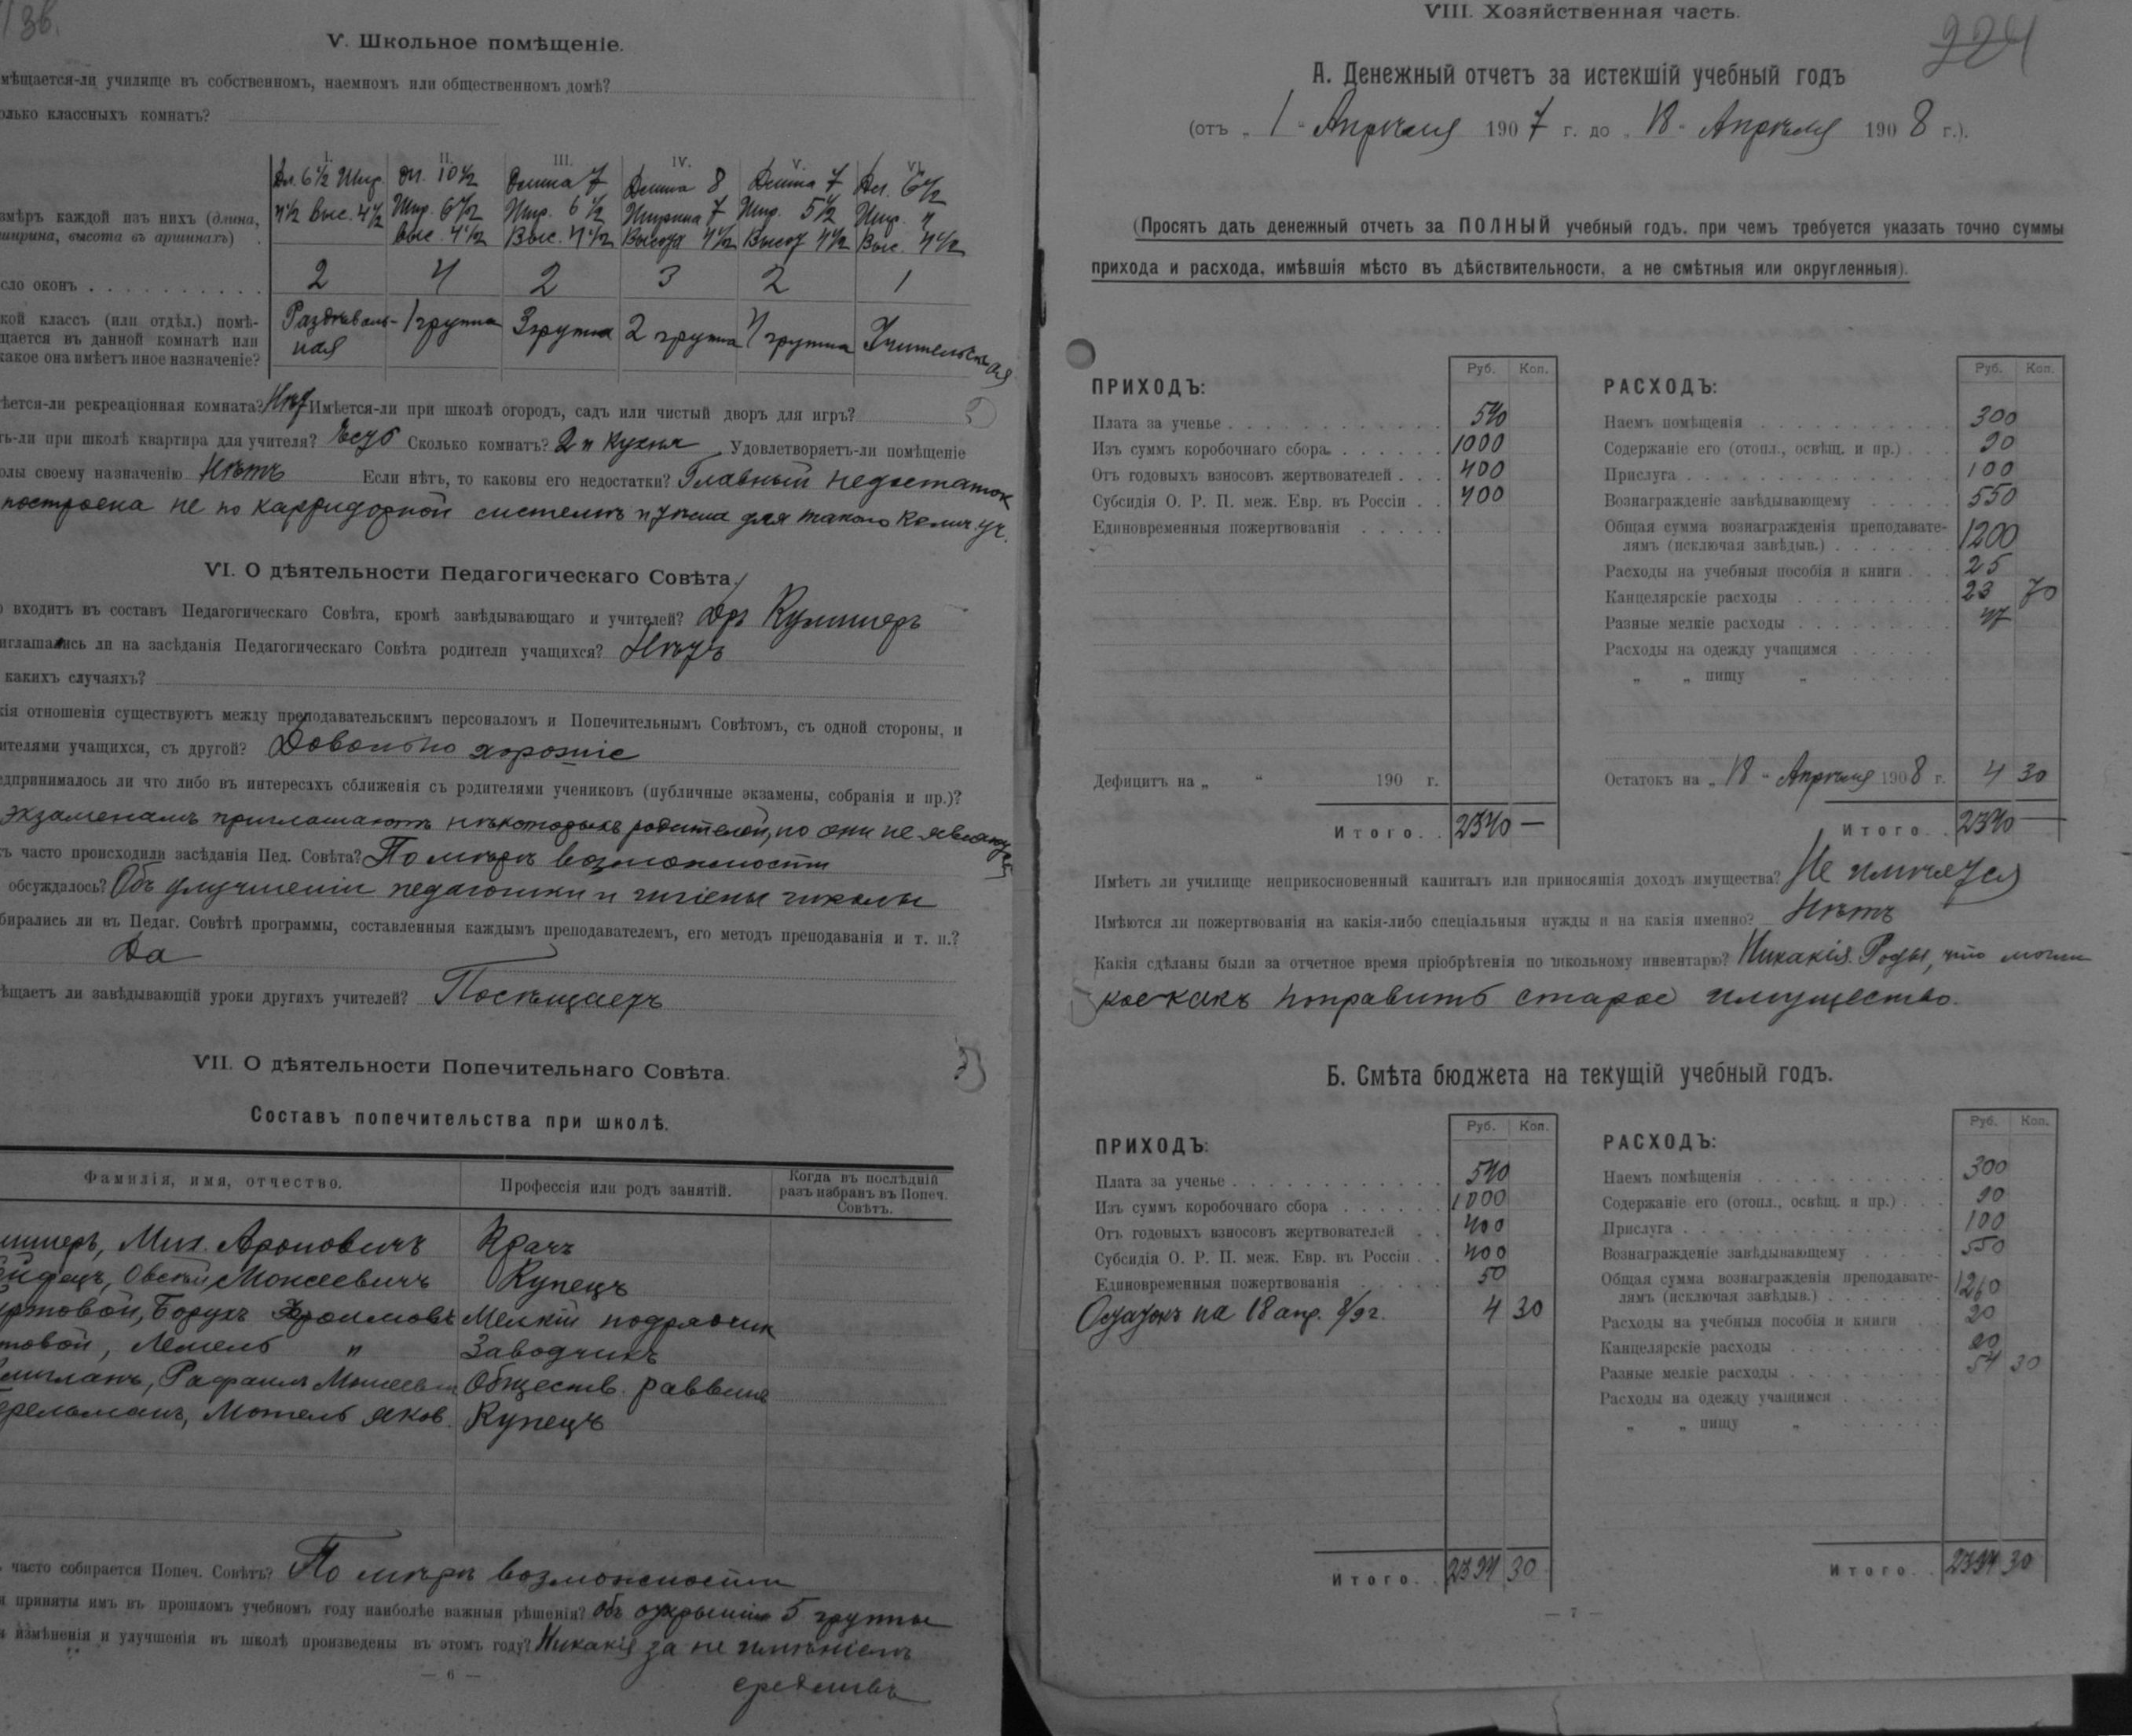 V. Школьное помѣщеніе.
мѣщается-ли училище въ собственномъ, наемномъ или общественномъ домѣ?
олько классныхъ комнатъ?
I. II. III. IV. V. VI.
Дл. 6½ Шир. Дл. 10½ Длина 7 Длина 8 Длина 7 Дл. 6½
змѣръ каждой изъ нихъ (длина, 4½ Выс. 4½ Шир. 6½ Шир. 6½ Ширина 7 Шир. 5½ Шир. 4
ширина, высота въ аршинахъ) Выс. 4½ Выс. 4½ Высота 4½ Высот 4½ Выс. 4½
сло оконъ 2 4 2 3 2 1
кой классъ (или отдѣл.) помѣ-
щается въ данной комнатѣ или
какое она имѣетъ иное назначеніе?
Раздѣваль-ная 1 группа 3 группа 2 группа 4 группа Учительская
ѣется-ли рекреаціонная комната? Нѣт Имѣется-ли при школѣ огородъ, садъ или чистый дворъ для игръ?
ть-ли при школѣ квартира для учителя? Есть Сколько комнатъ? 2 и кухня Удовлетворяетъ-ли помѣщеніе
олы своему назначенію Нѣтъ Если нѣтъ, то каковы его недостатки? Главный недостаток
построена не по карридорной системѣ и тѣсна для такого колич. уч.
VI. О дѣятельности Педагогическаго Совѣта.
о входитъ въ составъ Педагогическаго Совѣта, кромѣ завѣдывающаго и учителей? Др.
иглашались ли на засѣданія Педагогическаго Совѣта родители учащихся? Нѣтъ
какихъ случаяхъ?
кія отношенія существуютъ между преподавательскимъ персоналомъ и Попечительнымъ Совѣтомъ, съ одной стороны, и
ителями учащихся, съ другой? Довольно хорошіе
едпринималось ли что либо въ интересахъ сближенія съ родителями учениковъ (публичные экзамены, собранія и пр.)?
экзаменамъ приглашаютъ нѣкоторыхъ родителей, но они не являются
къ часто происходили засѣданія Пед. Совѣта? По мѣрѣ возможности
обсуждалось? Объ улучшеніи педагогики и гигіены школы
бирались ли въ Педаг. Совѣтѣ программы, составленныя каждымъ преподавателемъ, его методъ преподаванія и т. п.?
Да
ѣщаетъ ли завѣдывающій уроки другихъ учителей? Посѣщаетъ
VII. О дѣятельности Попечительнаго Совѣта.
Составъ попечительства при школѣ.
Фамилія, имя, отчество. Профессія или родъ занятій. Когда въ послѣдній
разъ избранъ въ Попеч.
Совѣтъ.
Мих. Ароновичъ Врачъ
Овсѣй Моисеевичъ Купецъ
Борухъ Мелкій подрядчик
товой, Лемель " Заводчикъ
Рафаилъ Моисеевич Обществ. раввинъ
Мотель Яков. Купецъ
часто собирается Попеч. Совѣтъ? По мѣрѣ возможности
приняты имъ въ прошломъ учебномъ году наиболѣе важныя рѣшенія? Объ открытіи 5 группы
измѣненія и улучшенія въ школѣ произведены въ этомъ году? Никакія за не имѣніемъ
средствъ
— 6 —
VIII. Хозяйственная часть.
224
А. Денежный отчетъ за истекшій учебный годъ
(отъ „ 1 " Апрѣля 1907 г. до „ 18 " Апрѣля 1908 г.).
(Просятъ дать денежный отчетъ за ПОЛНЫЙ учебный годъ, при чемъ требуется указать точно суммы
прихода и расхода, имѣвшія мѣсто въ дѣйствительности, а не смѣтныя или округленныя).
ПРИХОДЪ: Руб. Коп.
Плата за ученье 540
Изъ суммъ коробочнаго сбора 1000
Отъ годовыхъ взносовъ жертвователей 400
Субсидія О. Р. П. меж. Евр. въ Россіи 400
Единовременныя пожертвованія
Дефицитъ на „ " 190 г.
Итого 2340 —
РАСХОДЪ: Руб. Коп.
Наемъ помѣщенія 300
Содержаніе его (отопл., освѣщ. и пр.) 90
Прислуга 100
Вознагражденіе завѣдывающему 550
Общая сумма вознагражденія преподавате-
лямъ (исключая завѣдыв.) 1200
Расходы на учебныя пособія и книги 25
Канцелярскіе расходы 23 70
Разные мелкіе расходы 47
Расходы на одежду учащимся
„ „ пищу „
Остатокъ на „ 18 " Апрѣля 1908 г. 4 30
Итого 2340 —
Имѣетъ ли училище неприкосновенный капиталъ или приносящія доходъ имущества? Не имѣется
Имѣются ли пожертвованія на какія-либо спеціальныя нужды и на какія именно? Нѣтъ
Какія сдѣланы были за отчетное время пріобрѣтенія по школьному инвентарю? Никакія. Рады, что могли
кое какъ поправить старое имущество.
Б. Смѣта бюджета на текущій учебный годъ.
ПРИХОДЪ: Руб. Коп.
Плата за ученье 540
Изъ суммъ коробочнаго сбора 1000
Отъ годовыхъ взносовъ жертвователей 400
Субсидія О. Р. П. меж. Евр. въ Россіи 400
Единовременныя пожертвованія 50
Остатокъ на 18 апр. 8/9 г. 4 30
Итого 2394 30
РАСХОДЪ: Руб. Коп.
Наемъ помѣщенія 300
Содержаніе его (отопл., освѣщ. и пр.) 90
Прислуга 100
Вознагражденіе завѣдывающему 550
Общая сумма вознагражденія преподавате-
лямъ (исключая завѣдыв.) 1260
Расходы на учебныя пособія и книги 20
Канцелярскіе расходы 20
Разные мелкіе расходы 54 30
Расходы на одежду учащимся
„ „ пищу „
Итого 2394 30
— 7 —